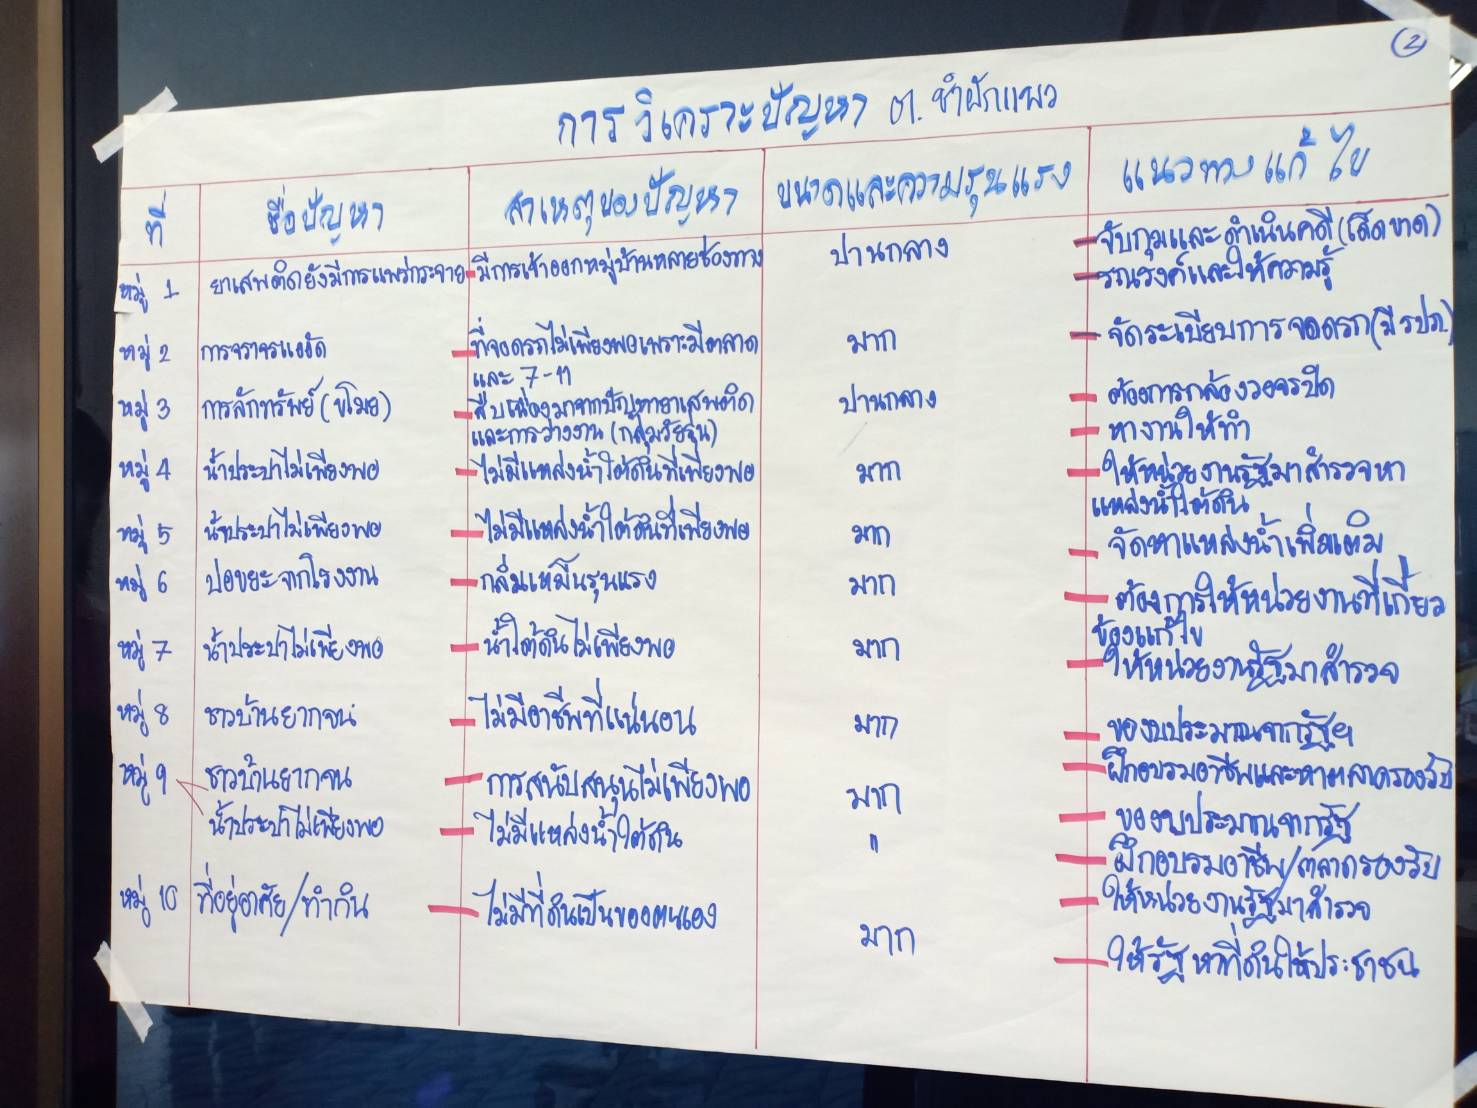 2
การวิเคราะห์ปัญหา ต. ชำผักแพว
ที่ ชื่อปัญหา สาเหตุของปัญหา ขนาดและความรุนแรง แนวทางแก้ไข
หมู่ 1 ยาเสพติดยังมีการแพร่กระจาย - มีการเข้าออกหมู่บ้านหลายช่องทาง ปานกลาง - จับกุมและดำเนินคดี (เด็ดขาด)
- รณรงค์และให้ความรู้
หมู่ 2 การจราจรแออัด - ที่จอดรถไม่เพียงพอเพราะมีตลาด มาก - จัดระเบียบการจอดรถ (มี รปภ.)
และ 7-11
หมู่ 3 การลักทรัพย์ (ขโมย) - สืบเนื่องมาจากปัญหายาเสพติด ปานกลาง - ต้องการกล้องวงจรปิด
และการว่างงาน (กลุ่มวัยรุ่น) - หางานให้ทำ
หมู่ 4 น้ำประปาไม่เพียงพอ - ไม่มีแหล่งน้ำใต้ดินที่เพียงพอ มาก - ให้หน่วยงานรัฐมาสำรวจหา
แหล่งน้ำใต้ดิน
หมู่ 5 น้ำประปาไม่เพียงพอ - ไม่มีแหล่งน้ำใต้ดินที่เพียงพอ มาก - จัดหาแหล่งน้ำเพิ่มเติม
หมู่ 6 บ่อขยะจากโรงงาน - กลิ่นเหม็นรุนแรง มาก - ต้องการให้หน่วยงานที่เกี่ยว
ข้องแก้ไข
หมู่ 7 น้ำประปาไม่เพียงพอ - น้ำใต้ดินไม่เพียงพอ มาก - ให้หน่วยงานรัฐมาสำรวจ
หมู่ 8 ชาวบ้านยากจน - ไม่มีอาชีพที่แน่นอน มาก - ของบประมาณจากรัฐฯ
- ฝึกอบรมอาชีพและหาตลาดรองรับ
หมู่ 9 ชาวบ้านยากจน - การสนับสนุนไม่เพียงพอ มาก - ของบประมาณจากรัฐ
น้ำประปาไม่เพียงพอ - ไม่มีแหล่งน้ำใต้ดิน " - ฝึกอบรมอาชีพ/ตลาดรองรับ
- ให้หน่วยงานรัฐมาสำรวจ
หมู่ 10 ที่อยู่อาศัย/ทำกิน - ไม่มีที่ดินเป็นของตนเอง มาก - ให้รัฐหาที่ดินให้ประชาชน